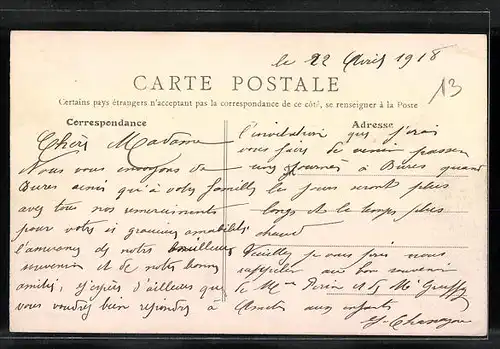 le 22 Avril 1918
13
CARTE POSTALE
Certains pays étrangers n'acceptant pas la correspondance de ce côté, se renseigner à la Poste
Correspondance
Chère Madame
Nous vous envoyons de
Bures ainsi qu'à votre famille
avec tous nos remerciements
pour votre si gracieuse amabilité
l'assurance de notre meilleur
souvenir et de notre bonne
amitié, j'espère d'ailleurs que
vous voudrez bien répondre à
Adresse
l'invitation que j'avais
vous faire de venir passer
une journée à Bures quand
les jours seront plus
longs et le temps plus
chaud
Veuillez je vous prie nous
rappeler au bon souvenir
de Mme et de Mr
Amitiés aux enfants